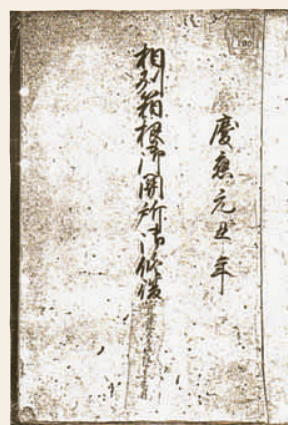 慶應元丑年
相州箱根御関所御修復